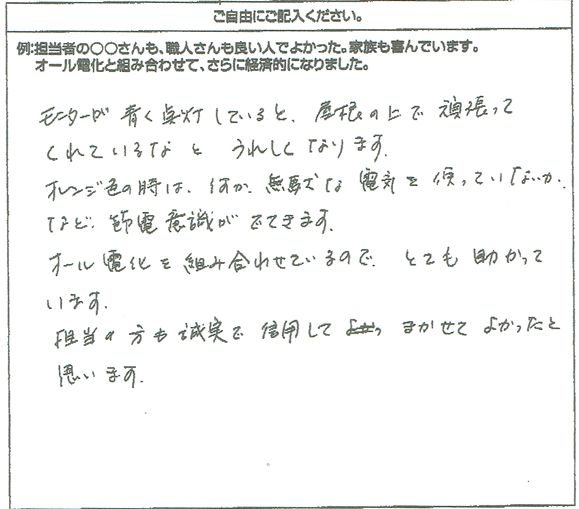 ご自由にご記入ください。
例:担当者の〇〇さんも、職人さんも良い人でよかった。家族も喜んでいます。
オール電化と組み合わせて、さらに経済的になりました。
モニターが青く点灯していると、屋根の上で頑張って
くれているなと うれしくなります。
オレンジ色の時は、何か、無駄な電気を使っていないか、
など、節電意識がでてきます。
オール電化を組み合わせているので、とても助かって
います。
担当の方も誠実で信用して まかせてよかったと
思います。